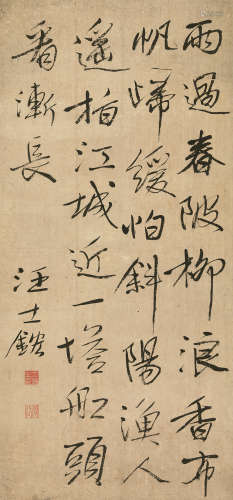 雨過春陂柳浪香布
帆歸緩怕斜陽漁人
遥指江城近一塔船頭
看漸長
汪士鋐